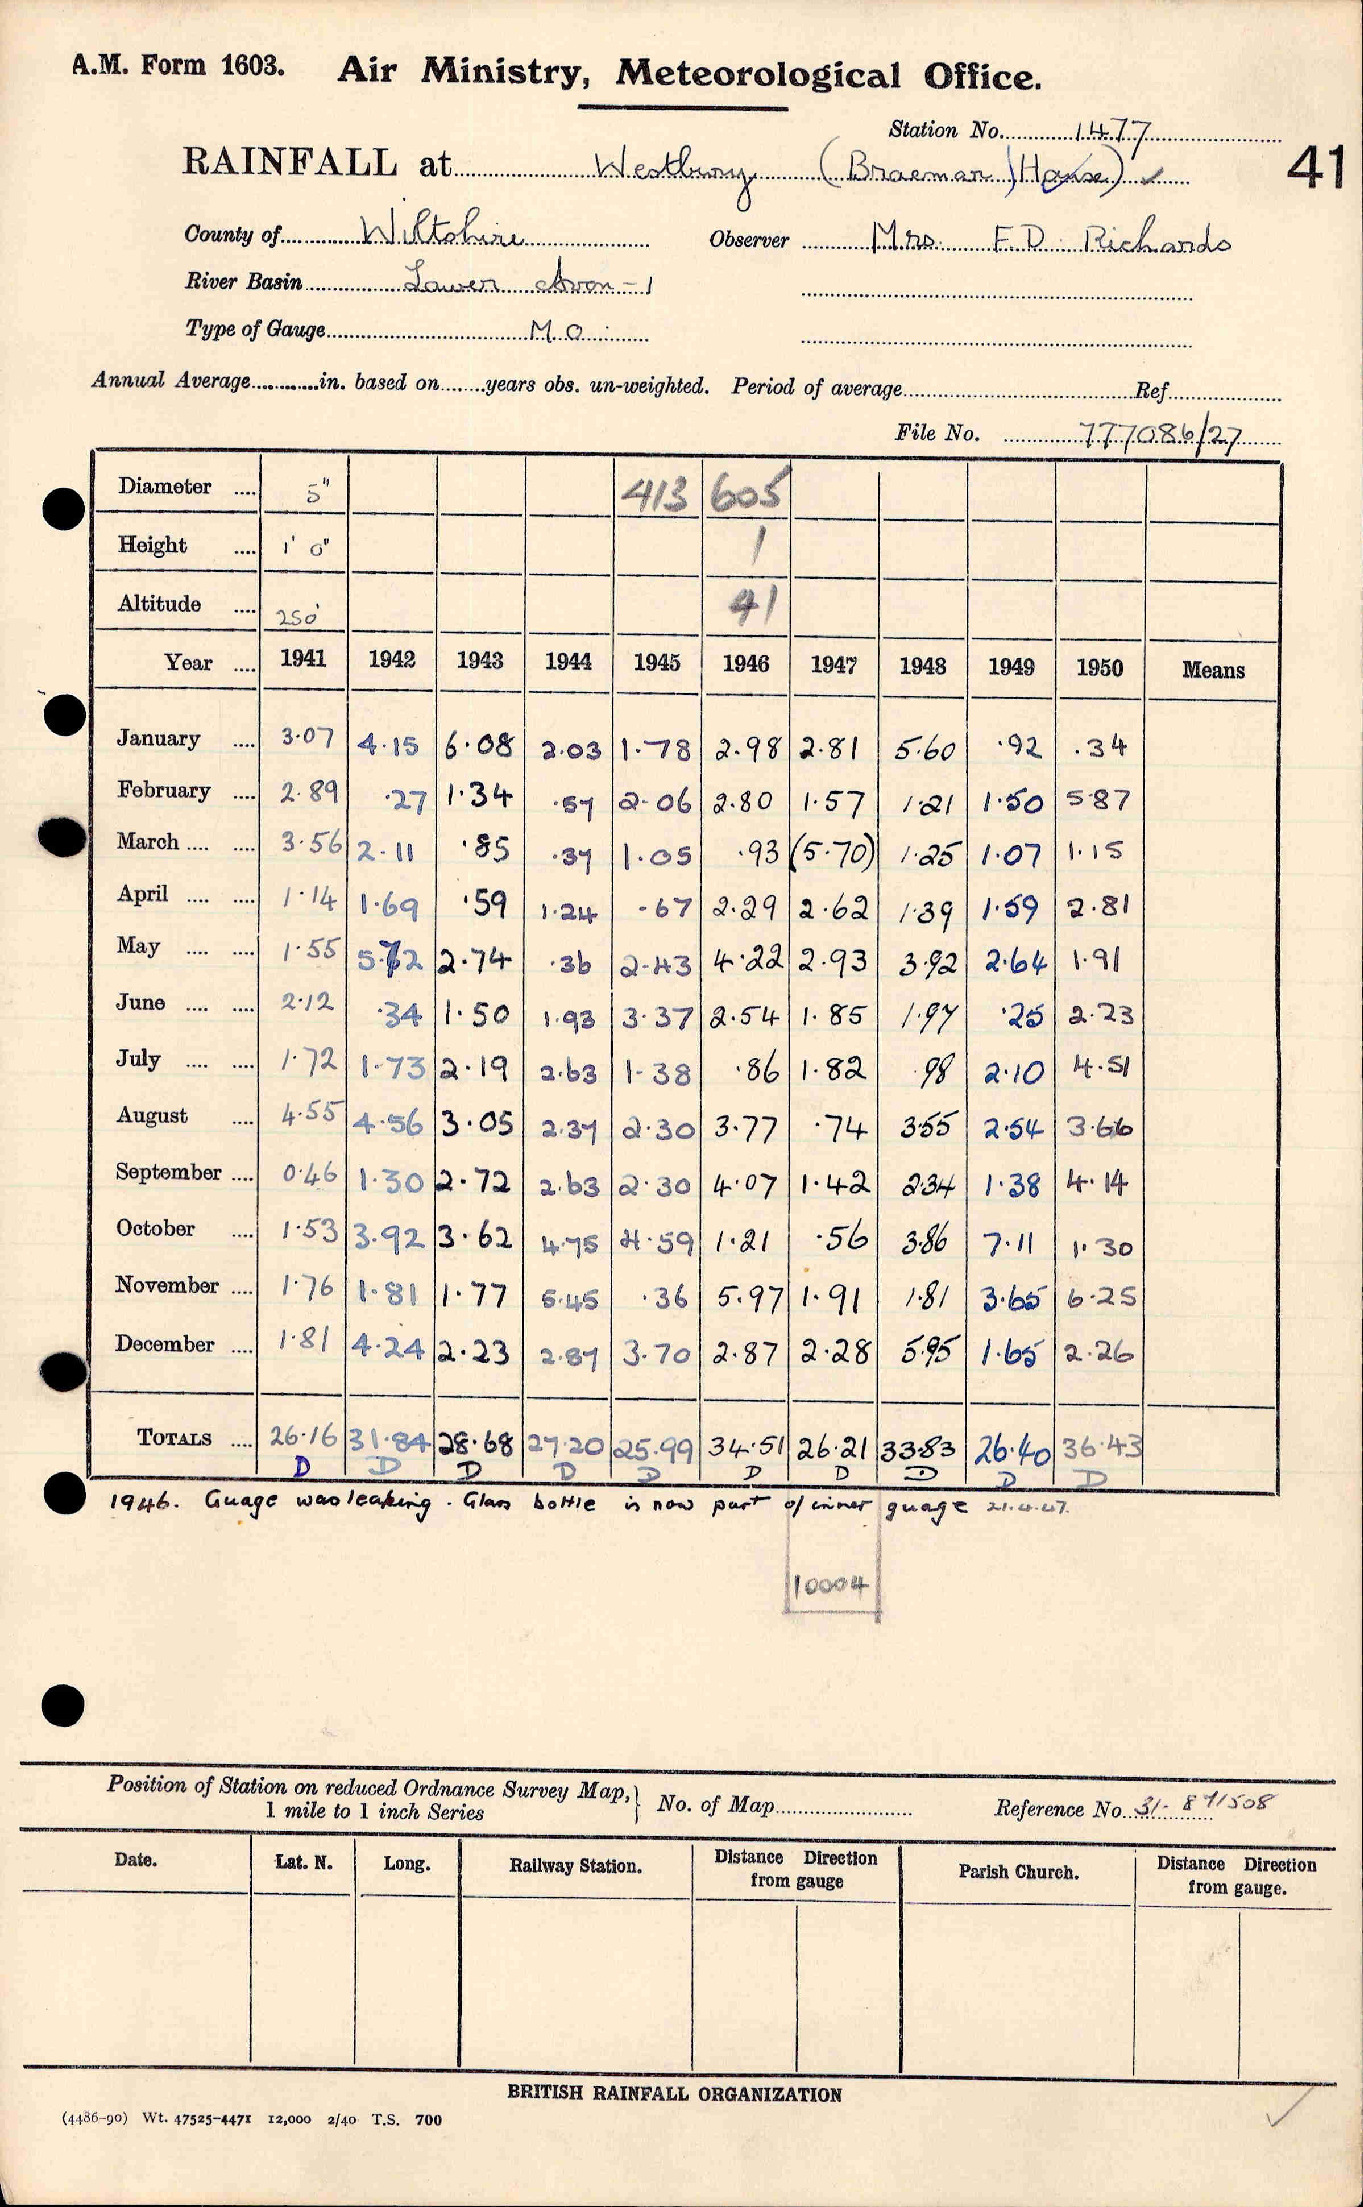 A.M. Form 1603. Air Ministry, Meteorological Office.
Station No. 1477
RAINFALL at Westbury (Braemar House) ✓ 41
County of Wiltshire Observer Mrs. F. D. Richards
River Basin Lower Avon - 1
Type of Gauge M.O.
Annual Average............in. based on.......years obs. un-weighted. Period of average Ref
File No. 777086/27
Diameter .... 5" 413 605
Height .... 1' 0" 1
Altitude .... 250' 41
Year .... 1941 1942 1943 1944 1945 1946 1947 1948 1949 1950 Means
January .... 3.07 4.15 6.08 2.03 1.78 2.98 2.81 5.60 .92 .34
February .... 2.89 .27 1.34 .57 2.06 2.80 1.57 1.21 1.50 5.87
March .... .... 3.56 2.11 .85 .37 1.05 .93 (5.70) 1.25 1.07 1.15
April .... .... 1.14 1.69 .59 1.24 .67 2.29 2.62 1.39 1.59 2.81
May .... .... 1.55 5.72 2.74 .36 2.43 4.22 2.93 3.92 2.64 1.91
June .... .... 2.12 .34 1.50 1.93 3.37 2.54 1.85 1.97 .25 2.23
July .... .... 1.72 1.73 2.19 2.63 1.38 .86 1.82 .98 2.10 4.51
August .... 4.55 4.56 3.05 2.37 2.30 3.77 .74 3.55 2.54 3.66
September .... 0.46 1.30 2.72 2.63 2.30 4.07 1.42 2.34 1.38 4.14
October .... 1.53 3.92 3.62 4.75 4.59 1.21 .56 3.86 7.11 1.30
November .... 1.76 1.81 1.77 5.45 .36 5.97 1.91 1.81 3.65 6.25
December .... 1.81 4.24 2.23 2.87 3.70 2.87 2.28 5.95 1.65 2.26
TOTALS .... 26.16 31.84 28.68 27.20 25.99 34.51 26.21 33.83 26.40 36.43
D D D D D D D D D D
1946. Guage was leaking. Glass bottle is now part of inner guage 21.4.47.
10004
Position of Station on reduced Ordnance Survey Map,
1 mile to 1 inch Series } No. of Map Reference No. 31-871508
Date. Lat. N. Long. Railway Station. Distance Direction from gauge Parish Church. Distance Direction from gauge.
BRITISH RAINFALL ORGANIZATION
(4486-90) Wt. 47525-4471 12,000 2/40 T.S. 700